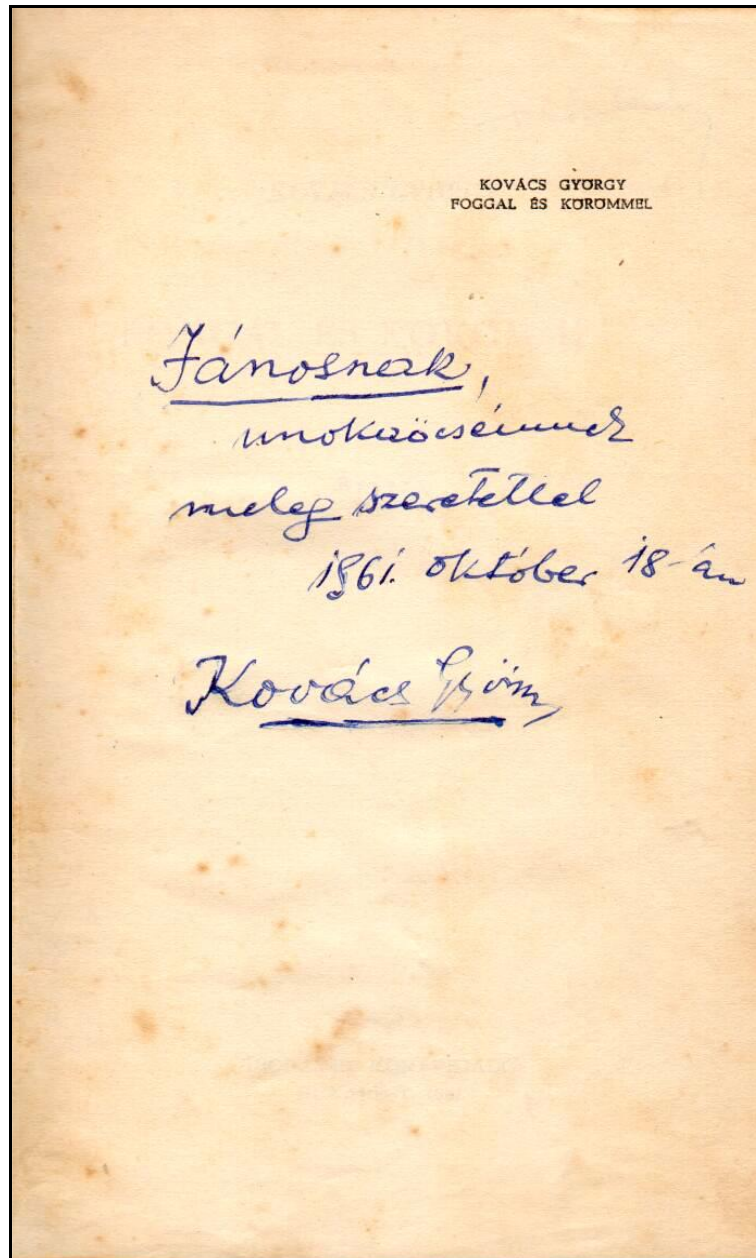 KOVÁCS GYÖRGY
FOGGAL ÉS KÖRÖMMEL
Jánosnak,
unokaöcsémnek
meleg szeretettel
1961. október 18-án
Kovács György